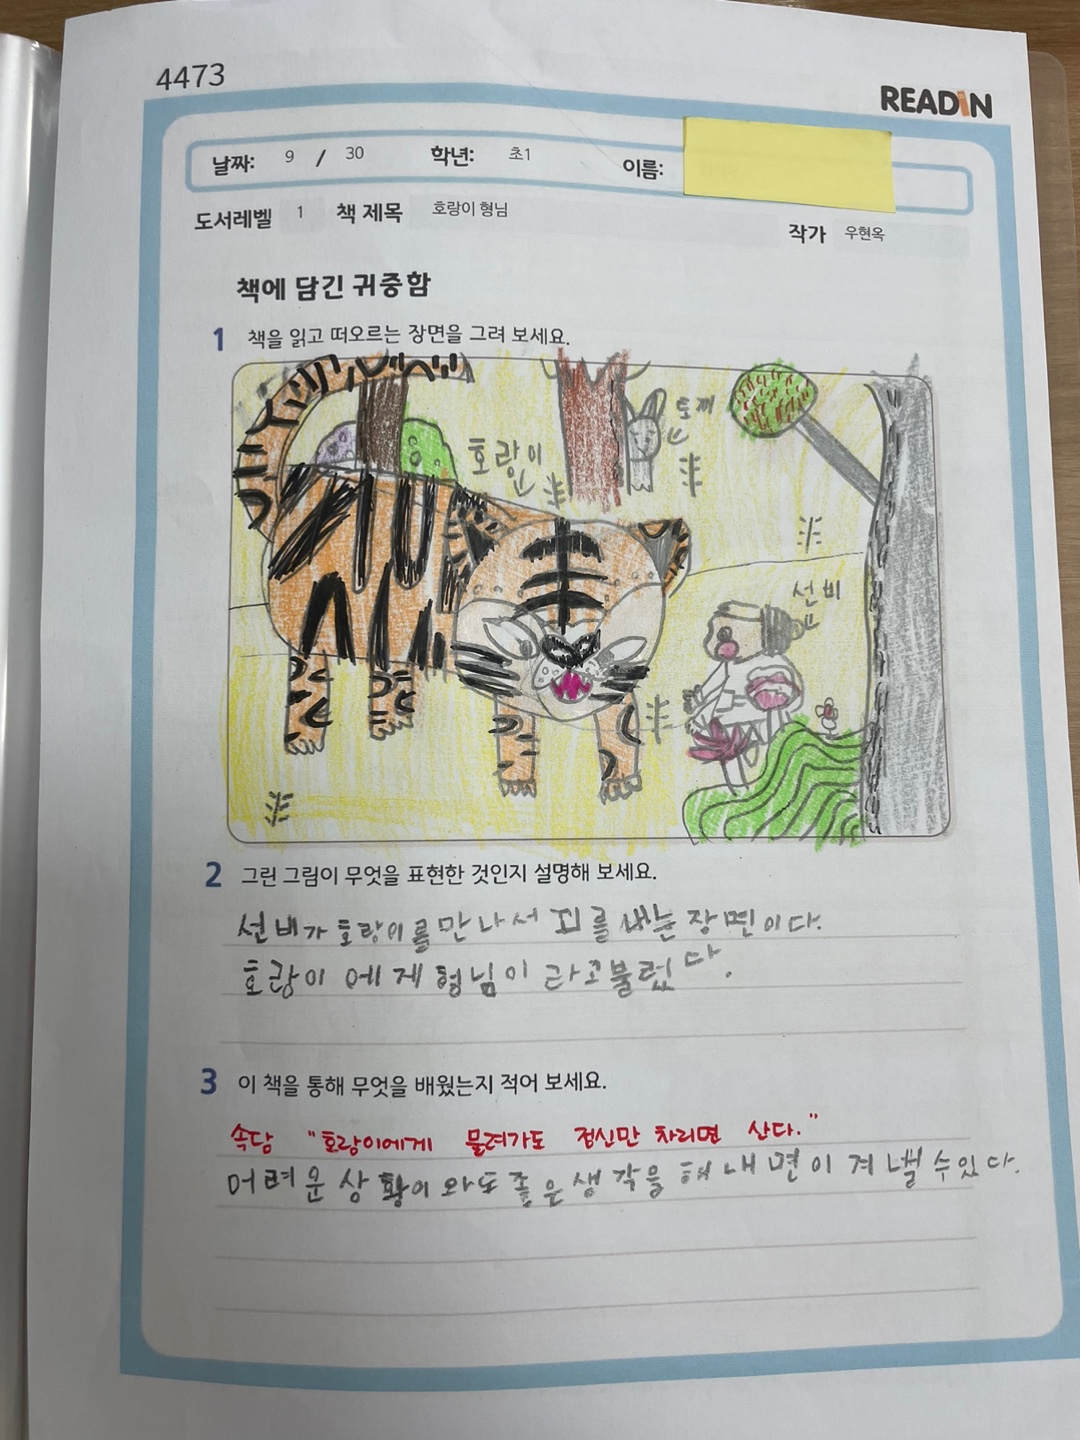 4473
READIN
날짜: 9 / 30 학년: 초1 이름:
도서레벨 1 책 제목 호랑이 형님 작가 우현옥
책에 담긴 귀중함
1 책을 읽고 떠오르는 장면을 그려 보세요.
토끼
호랑이
선비
2 그린 그림이 무엇을 표현한 것인지 설명해 보세요.
선비가 호랑이를 만나서 꾀를 내는 장면이다.
호랑이 에게 형님이 라고불렀다.
3 이 책을 통해 무엇을 배웠는지 적어 보세요.
속담 "호랑이에게 물려가도 정신만 차리면 산다."
어려운 상황이 와도 좋은 생각을 해내면 이겨낼 수 있다.